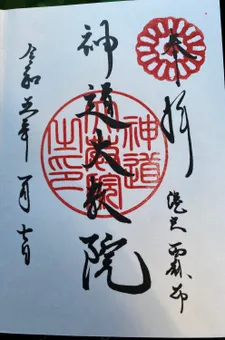 奉拝
港区 西麻布
神道大教院
神道
大教院
之印
令和